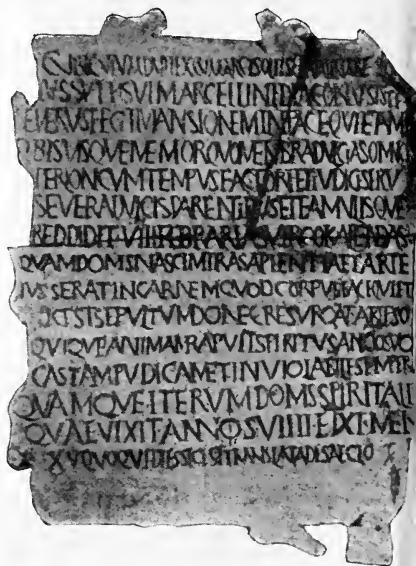 CVBICVLVM DVPLEX CVM ARCISOLIIS ET LVMINARE
IVSSV PP SVI MARCELLINI DIACONVS ISTE
EVERVS FECIT MANSIONEM IN PACE QVIETAM
BI SVISQVE MEMOR QVO MEMBRA DVLCIA SOMNO
TEMPVS FACTORI ET IVDICI SERVE
SEVERA DVLCIS PARENTIBVS ET FAMVLISQVE
REDDIDIT VIII FEBRARIAS VIRGO KALENDAS
QVAM DOMS NASCI MIRA SAPIENTIA ET ARTE
IVSSERAT IN CARNEM QVOD CORPVS
EST SEPVLTVM DONEC RESVRGAT AB IPSO
QVIQVE ANIMAM RAPVIT SPIRITV SANCTO SVO
CASTAM PVDICAM ET INVIOLABILE SEMPER
QVAMQVE ITERVM DOMS SPIRITALI
QVAE VIXIT ANNOS VIIII ET XI MEN
XV QVOQVE DIES SIC EST TRANSLATA DE SAECLO